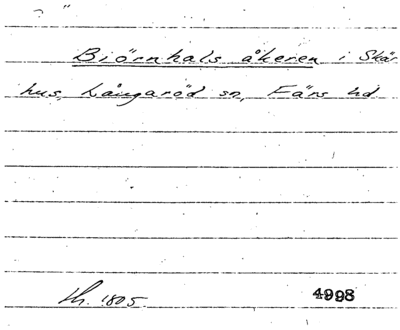 Biörnhals åkeren i Skär
hus, Långaröd sn, Färs hd
lh. 1805. 4998